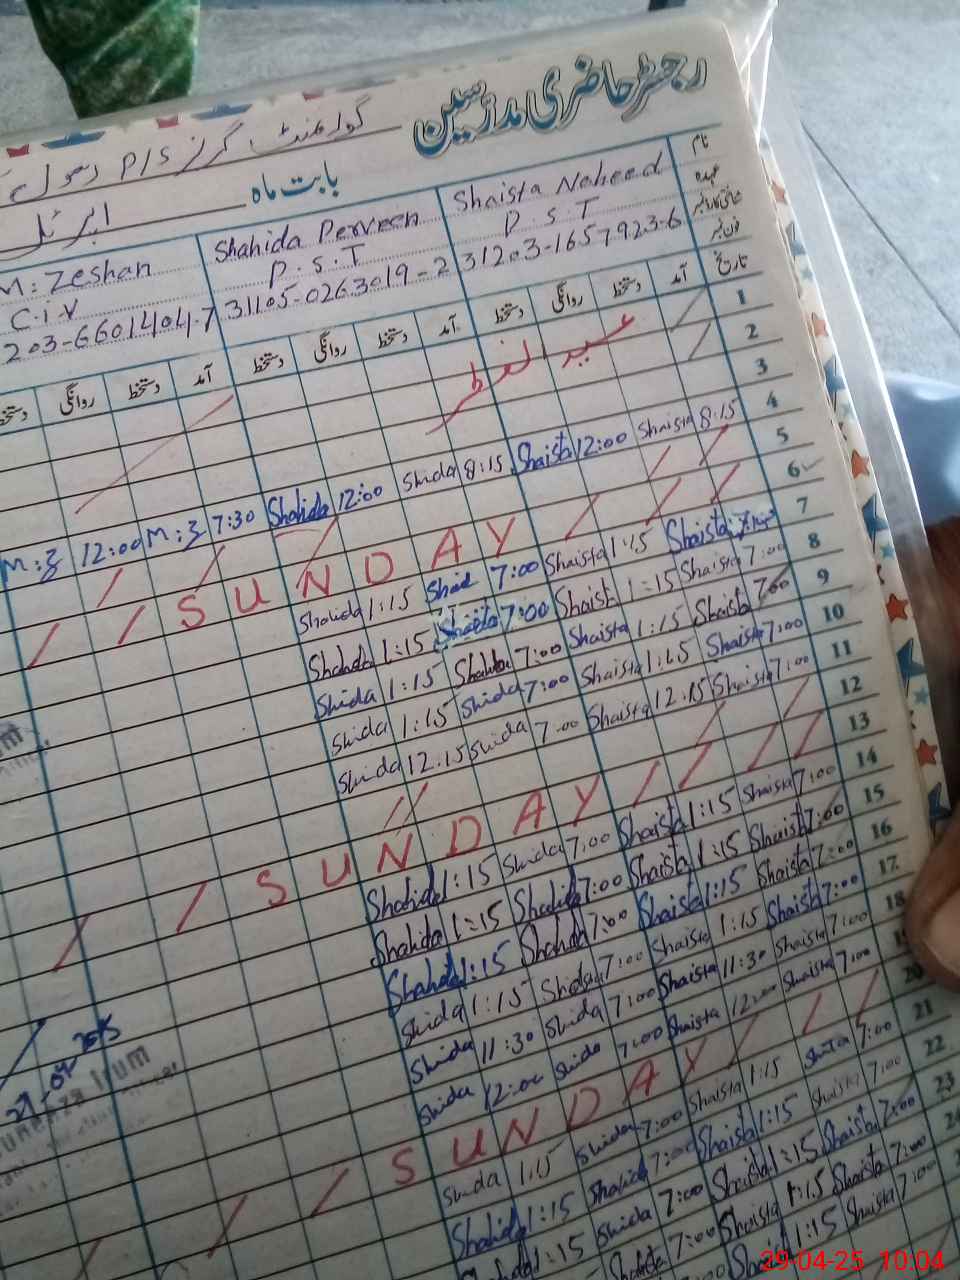 رجسٹر حاضری مدرسین
گورنمنٹ گرلز P/S رسول
بابت ماہ اپریل
نام Shaista Naheed Shahida Perveen M: Zeshan
عہدہ P.S.T P.S.T C.iV
شناختی کارڈ نمبر 31203-1657923-6 31105-0263019-2 203-6601404-7
فون نمبر
تاریخ آمد دستخط روانگی دستخط آمد دستخط روانگی دستخط آمد دستخط روانگی دستخط
1
2 عید الفطر
3
4
5 8:15 Shaista 12:00 Shaista 8:15 Shida 12:00 Shahida 7:30 M:Z 12:00 M:Z
6 SUNDAY
7 Shaista 1:15 Shaista 7:00 Shaid 1:15 Shahida
8 7:00 Shaista 1:15 Shaista 7:00 1:15 Shahida
9 7:00 Shaista 1:15 Shaista 7:00 Shahida 1:15 Shida
10 7:00 Shaista 1:15 Shaista 7:00 Shida 1:15 Shida
11 7:00 Shaista 12:15 Shaista 7:00 Shida 12:15 Shida
12
13 SUNDAY
14 7:00 Shaista 1:15 Shaista 7:00 Shida 1:15 Shahida
15 7:00 Shaista 1:15 Shaista 7:00 Shahida 1:15 Shahida
16 7:00 Shaista 1:15 Shaista 7:00 Shahida 1:15 Shahida
17 7:00 Shaista 1:15 Shaista 7:00 Shida 1:15 Shida
18 7:00 Shaista 11:30 Shaista 7:00 Shida 11:30 Shida
7:00 Shaista 12:00 Shaista 7:00 Shida 12:00 Shida
20 SUNDAY
21 7:00 Shaista 1:15 Shaista 7:00 Shida 1:15 Shida
22 7:00 Shaista 1:15 Shaista 7:00 Shahida 1:15 Shahida
23 7:00 Shaista 1:15 Shaista 7:00 Shida 1:15 Shahida
7:00 Shaista 1:15 Shaista 7:00
7:00 Shaista 1:15 Shaista
Irum
29-04-25 10:04